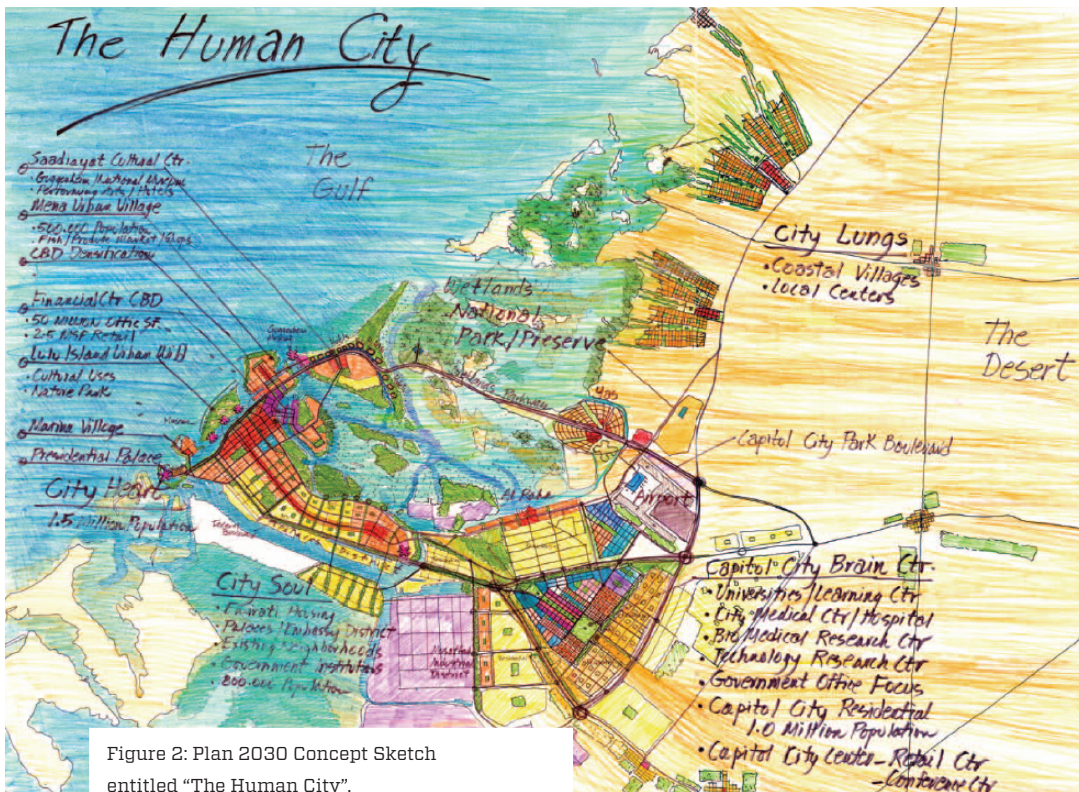 The Human City
The
Gulf
Saadiayat Cultural Ctr.
• Guggenheim/National Museum
• Performing Arts/Hotels
Mena Urban Village
• 500,000 Population
• Fish/Produce Market/Shops
CBD Densification
Financial Ctr CBD
• 50 Million Office SF
• 2.5 MSF Retail
Lulu Island Urban
• Cultural Uses
• Nature Park
Marina Village
Presidential Palace
City Heart
1.5 Million Population
Wetlands
National
Park/Preserve
City Lungs
• Coastal Villages
• Local Centers
The
Desert
Parkway
Yas
Capitol City Park Boulevard
Airport
City Soul
• Emirati Housing
• Palaces/Embassy District
• Existing Neighborhoods
• Government Institutions
• 800,000 Population
Industrial
District
Capitol City Brain Ctr.
• Universities/Learning Ctr
• City Medical Ctr/Hospital
• Bio Medical Research Ctr
• Technology Research Ctr
• Government Office Focus
• Capitol City Residential
1.0 Million Population
• Capitol City Center - Retail Ctr
- Conference Ctr
Figure 2: Plan 2030 Concept Sketch
entitled “The Human City”.